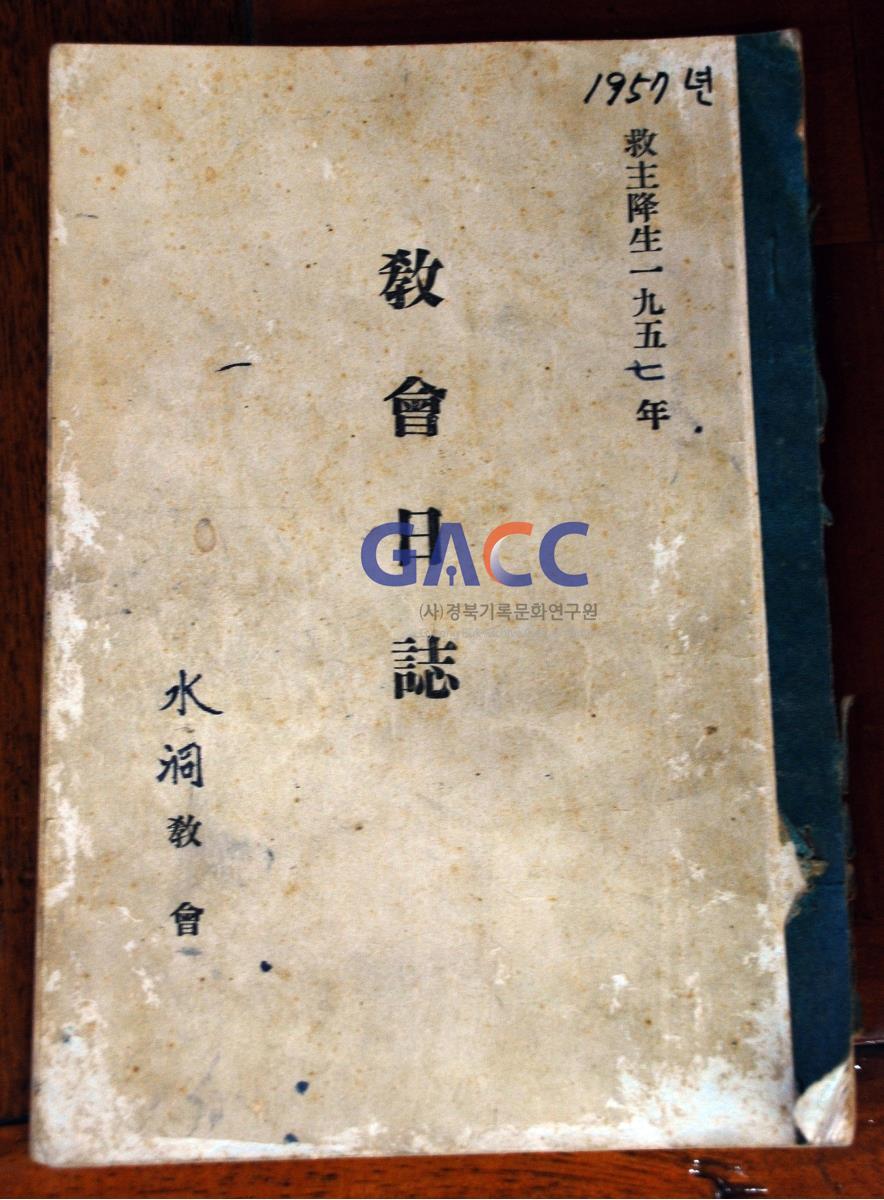 1957년
救主降生一九五七年
敎會日誌
水洞敎會
GACC
(사)경북기록문화연구원